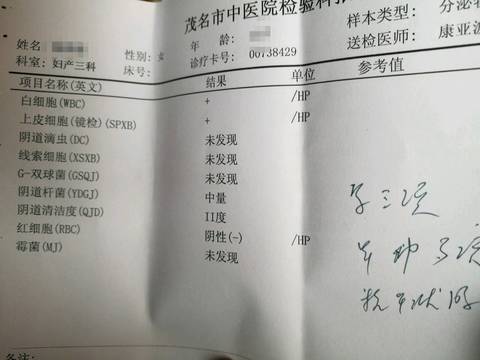 茂名市中医院检验科
样本类型: 分泌
姓名
性别: 女
年 龄:
送检医师: 康亚波
科室: 妇产三科
床号:
诊疗卡号: 00738429
项目名称(英文) 结果 单位 参考值
白细胞(WBC) + /HP
上皮细胞(镜检)(SPXB) + /HP
阴道滴虫(DC) 未发现
线索细胞(XSXB) 未发现
G-双球菌(GSQJ) 未发现
阴道杆菌(YDGJ) 中量
阴道清洁度(QJD) II度
红细胞(RBC) 阴性(-) /HP
霉菌(MJ) 未发现
备注: